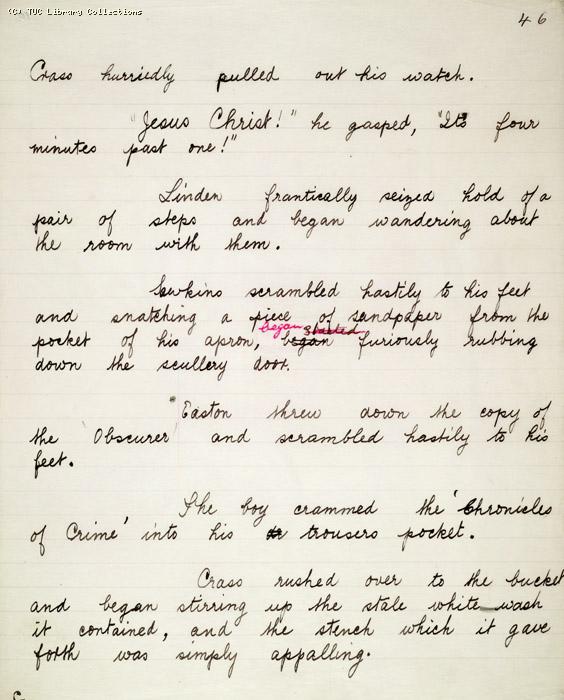 (C) TUC Library Collections
46
Crass hurriedly pulled out his watch.
"Jesus Christ!" he gasped, "Its four
minutes past one!"
Linden frantically seized hold of a
pair of steps and began wandering about
the room with them.
Sawkins scrambled hastily to his feet
and snatching a piece of sandpaper from the
began started
pocket of his apron, began furiously rubbing
down the scullery door.
Easton threw down the copy of
the 'Obscurer' and scrambled hastily to his
feet.
The boy crammed the 'Chronicles
of Crime' into his trousers pocket.
Crass rushed over to the bucket
and began stirring up the stale white-wash
it contained, and the stench which it gave
forth was simply appalling.